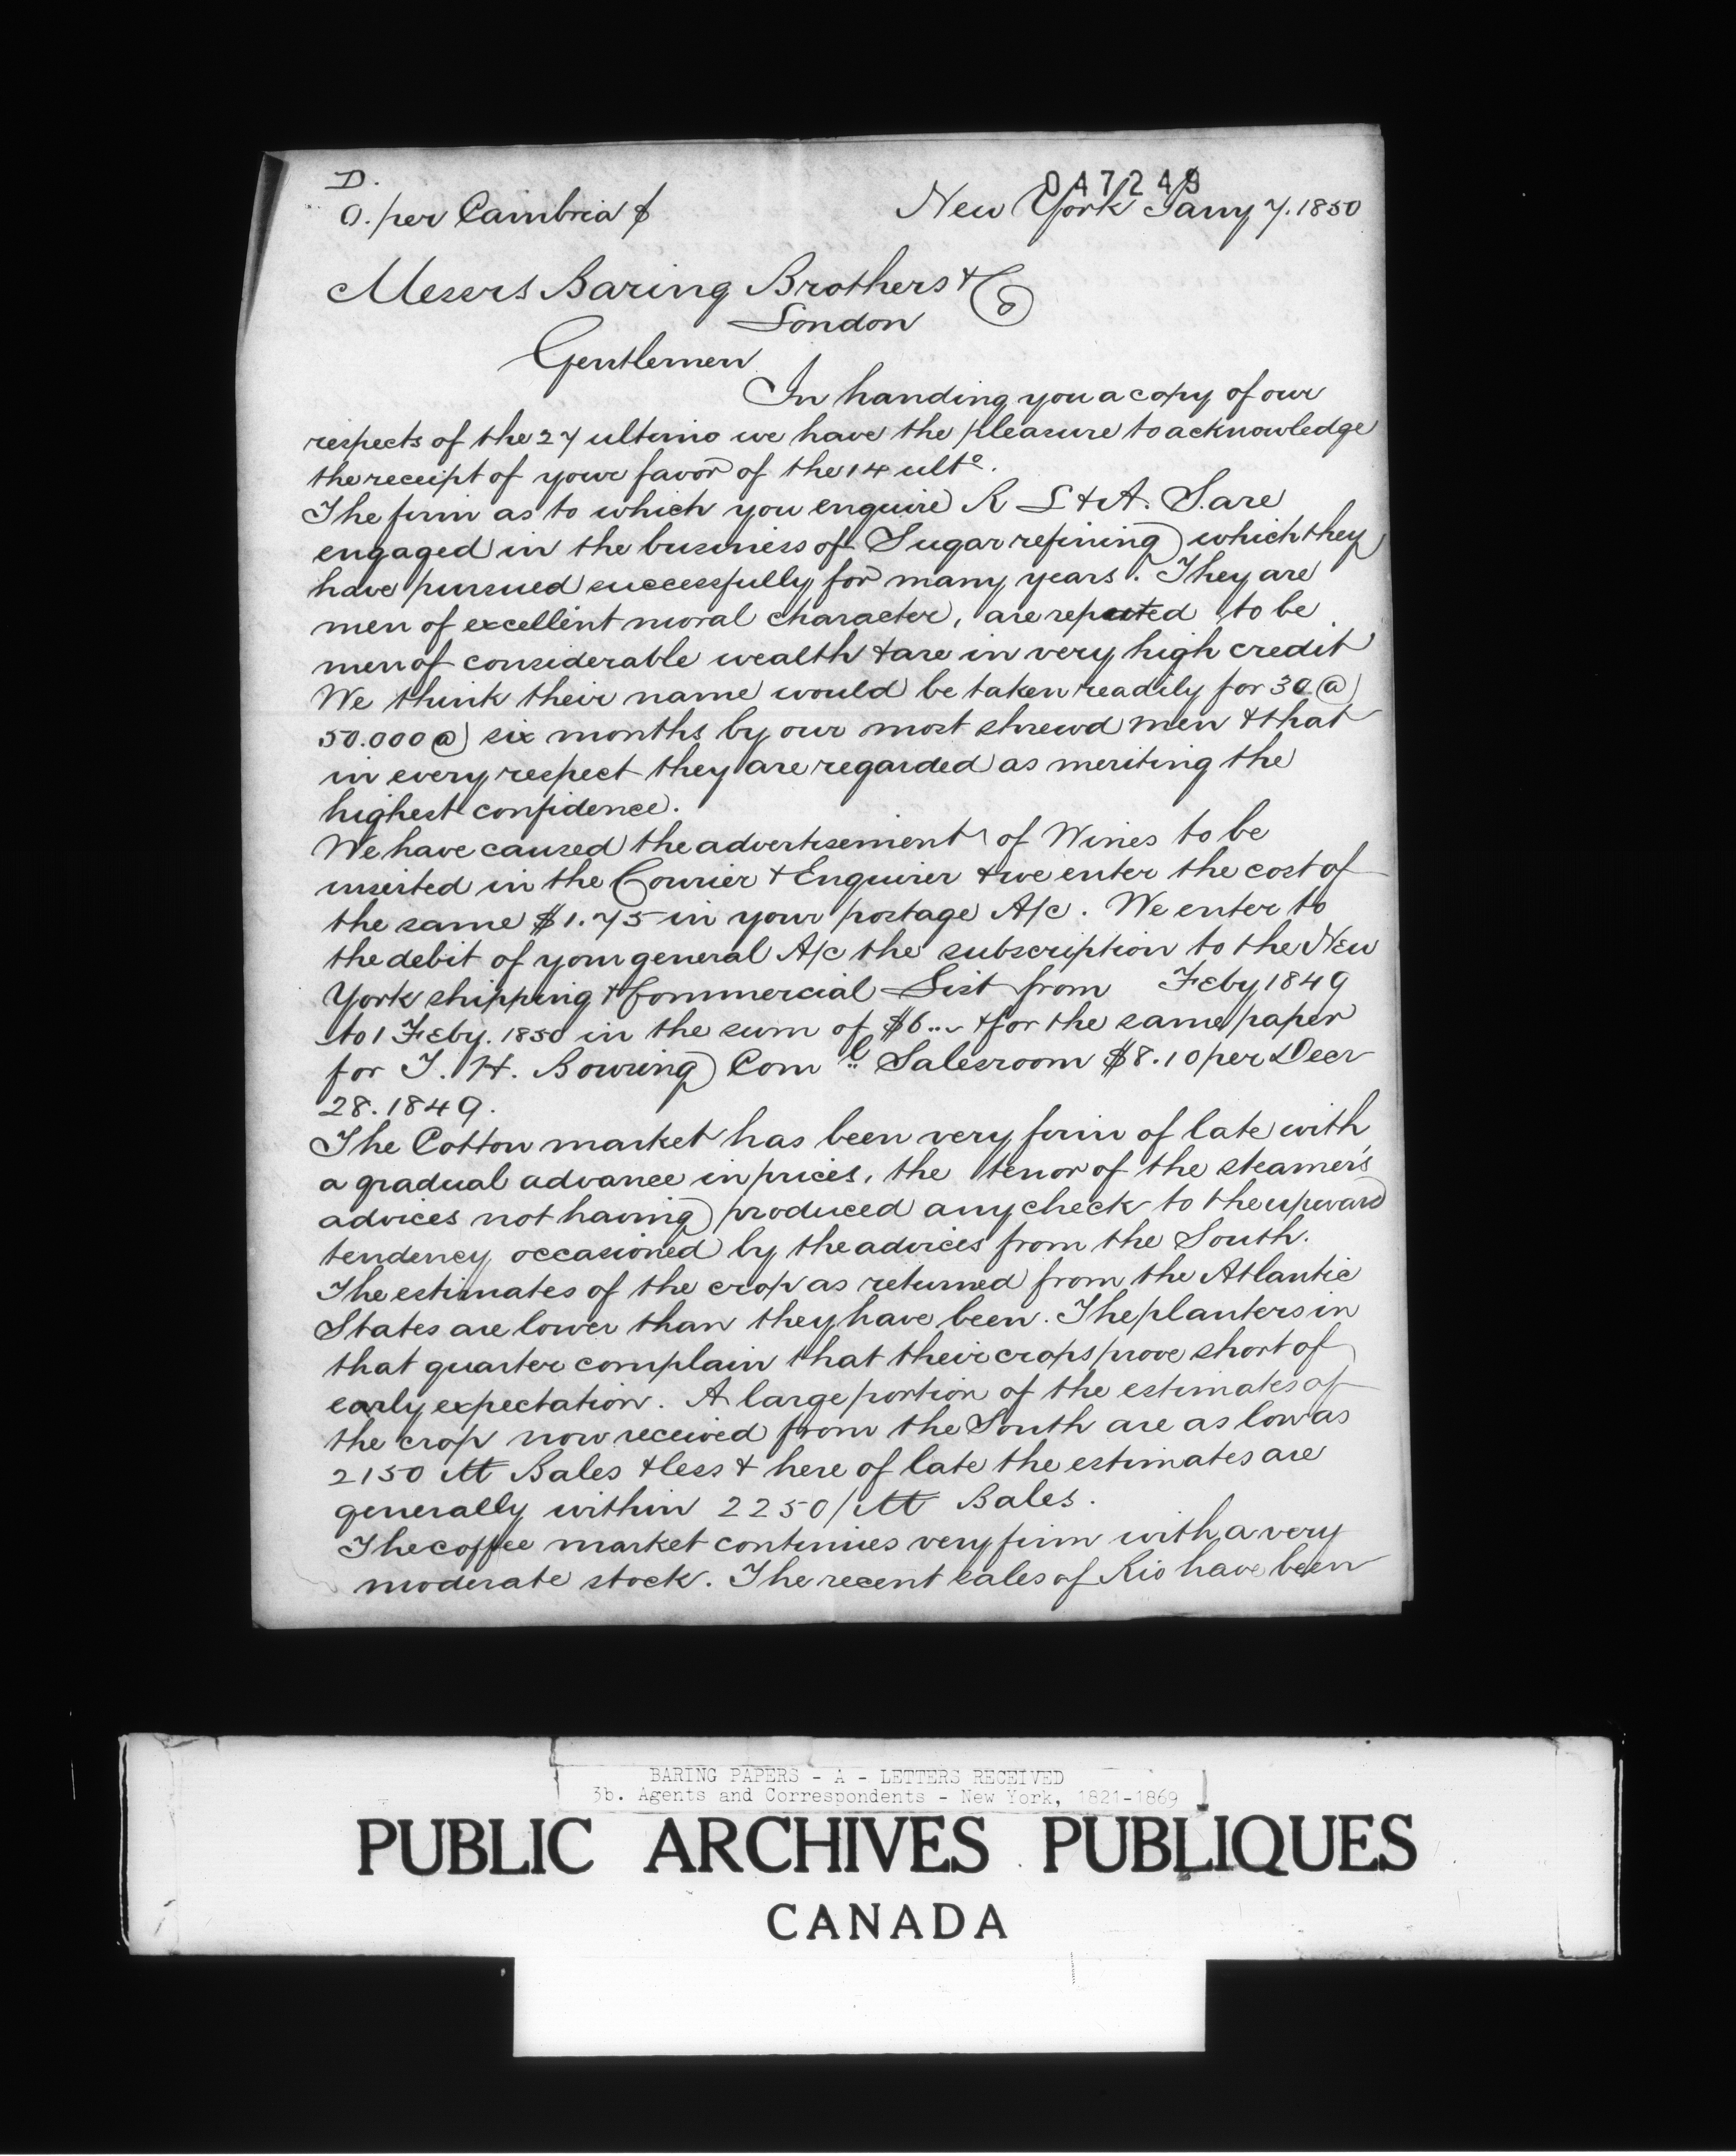 D.
047249
O. per Cambria &
New York Jany 7. 1850
Messrs Baring Brothers & Co
London
Gentlemen
In handing you a copy of our
respects of the 27 ultimo we have the pleasure to acknowledge
the receipt of your favor of the 14 ulto.
The firm as to which you enquire R L & A. S. are
engaged in the business of Sugar refining which they
have pursued successfully for many years. They are
men of excellent moral character, are reputed to be
men of considerable wealth & are in very high credit
We think their name would be taken readily for 30 @
50.000 @ six months by our most shrewd men & that
in every respect they are regarded as meriting the
highest confidence.
We have caused the advertisement of Wines to be
inserted in the Courier & Enquirer & we enter the cost of
the same $1.75 in your postage A/c. We enter to
the debit of your general A/c the subscription to the New
York shipping & Commercial List from Feby 1849
to 1 Feby. 1850 in the sum of $6.. & for the same paper
for T. H. Bowring Coml Salesroom $8.10 per Decr
28. 1849.
The Cotton market has been very firm of late with
a gradual advance in prices, the tenor of the steamer's
advices not having produced any check to the upward
tendency occasioned by the advices from the South.
The estimates of the crop as returned from the Atlantic
States are lower than they have been. The planters in
that quarter complain that their crops prove short of
early expectation. A large portion of the estimates of
the crop now received from the South are as low as
2150 M Bales & less & here of late the estimates are
generally within 2250/M Bales.
The coffee market continues very firm with a very
moderate stock. The recent sales of Rio have been
BARING PAPERS - A - LETTERS RECEIVED
3b. Agents and Correspondents - New York, 1821-1869
PUBLIC ARCHIVES PUBLIQUES
CANADA